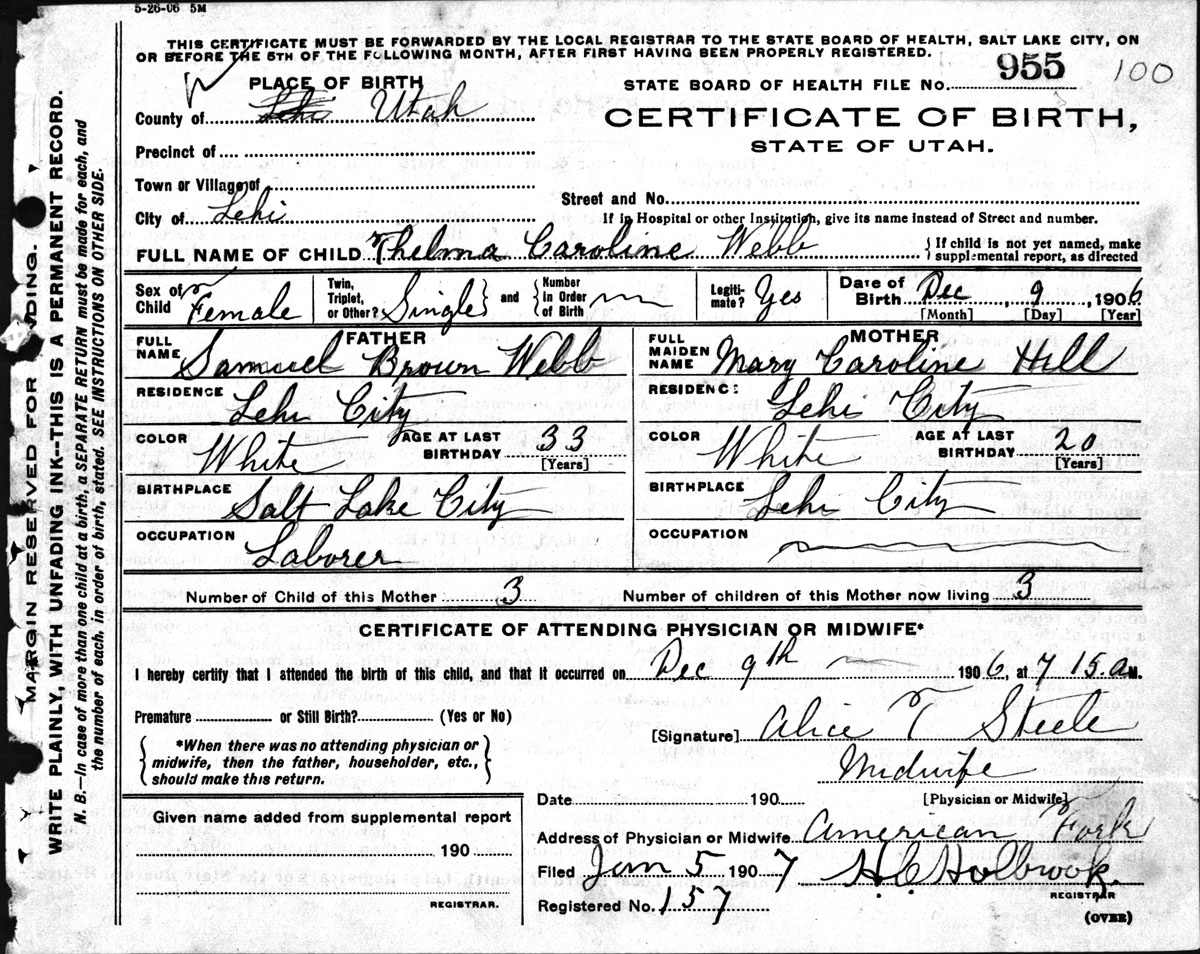 5-26-06 5M
THIS CERTIFICATE MUST BE FORWARDED BY THE LOCAL REGISTRAR TO THE STATE BOARD OF HEALTH, SALT LAKE CITY, ON
OR BEFORE THE 5TH OF THE FOLLOWING MONTH, AFTER FIRST HAVING BEEN PROPERLY REGISTERED.
PLACE OF BIRTH
STATE BOARD OF HEALTH FILE No. 955 100
County of Lehi Utah
CERTIFICATE OF BIRTH,
STATE OF UTAH.
Precinct of
Town or Village of
Street and No.
City of Lehi
If in Hospital or other Institution, give its name instead of Street and number.
FULL NAME OF CHILD Thelma Caroline Webb
{ If child is not yet named, make
supplemental report, as directed
Sex of Child Female
Twin, Triplet, or Other? Single } and { Number in Order of Birth
Legiti-mate? Yes
Date of Birth Dec, 9, 1906
[Month] [Day] [Year]
FATHER
FULL NAME Samuel Brown Webb
RESIDENCE Lehi City
COLOR White AGE AT LAST BIRTHDAY 33
[Years]
BIRTHPLACE Salt Lake City
OCCUPATION Laborer
MOTHER
FULL MAIDEN NAME Mary Caroline Hill
RESIDENCE Lehi City
COLOR White AGE AT LAST BIRTHDAY 20
[Years]
BIRTHPLACE Lehi City
OCCUPATION
Number of Child of this Mother 3 Number of children of this Mother now living 3
CERTIFICATE OF ATTENDING PHYSICIAN OR MIDWIFE*
I hereby certify that I attended the birth of this child, and that it occurred on Dec 9th 1906, at 7 15 a M.
Premature or Still Birth? (Yes or No)
[Signature] Alice T Steele
{ *When there was no attending physician or
midwife, then the father, householder, etc.,
should make this return. }
Midwife
[Physician or Midwife]
Date 190
Given name added from supplemental report
190
REGISTRAR.
Address of Physician or Midwife American Fork
Filed Jan 5 1907 H. C. Holbrook.
REGISTRAR
Registered No. 157
(OVER)
MARGIN RESERVED FOR BINDING.
WRITE PLAINLY, WITH UNFADING INK--THIS IS A PERMANENT RECORD.
N. B.—In case of more than one child at a birth, a SEPARATE RETURN must be made for each, and
the number of each, in order of birth, stated. SEE INSTRUCTIONS ON OTHER SIDE.